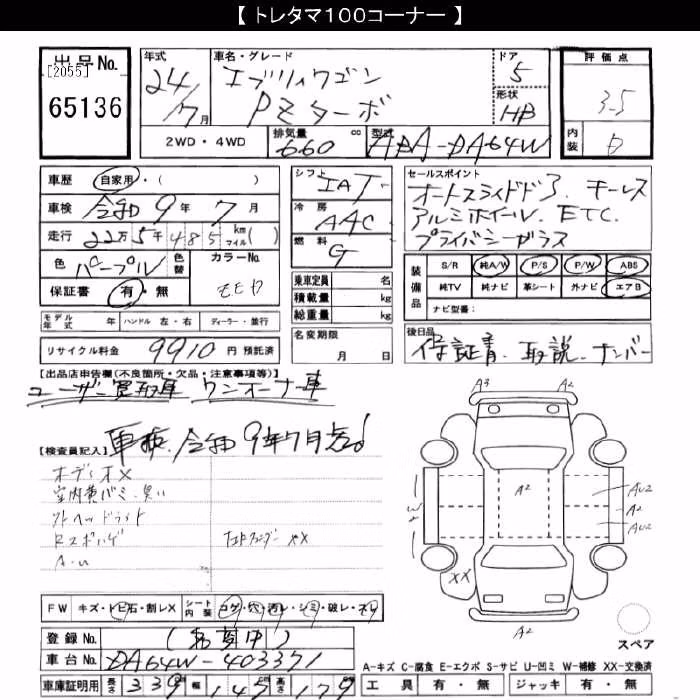 【 トレタマ１００コーナー 】
出品No.
[2055]
65136
年式 24/7月
車名・グレード エブリィワゴン
PZターボ
ドア 5
形状 HB
評価点 3.5
内装 D
2WD・4WD 排気量 660 cc 型式 ABA-DA64W
車歴 自家用・( )
車検 令和 9年 7月
走行 22万5千485 km マイル( )
色 パープル 色替 カラーNo. ZED
保証書 有・無
シフト IAT
冷房 AAC
燃料 G
乗車定員 名
積載量 kg
総重量 kg
セールスポイント
オートスライドドア. キーレス
アルミホイール. ETC
プライバシーガラス
装備品 S/R 純A/W P/S P/W ABS
純TV 純ナビ 革シート 外ナビ エアB
ナビ型番:
モデル年式 年 ハンドル 左・右 ディーラー・並行
リサイクル料金 9910 円 預託済
名変期限 月 日
後日品
保証書. 取説. ナンバー
【出品店申告欄(不良箇所・欠品・注意事項等)】
ユーザー買取車 ワンオーナー車
車検 令和9年7月迄!
【検査員記入】
オーディオX
室内黄バミ・臭い
ソトヘッドライト
Rスポハゲ
A.U
FW キズ・トビ石・割レX シート内装 コゲ・穴・汚レ・シミ・破レ・スレ
登録No. (名変中)
車台No. DA64W-403371
車庫証明用 長さ 339 幅 147 高さ 179
A3 A2
A2
AU2
A2
AU2
W2
XX
A2
スペア
A-キズ C-腐食 E-エクボ S-サビ U-凹ミ W-補修 XX-交換済
工具 有・無 ジャッキ 有・無